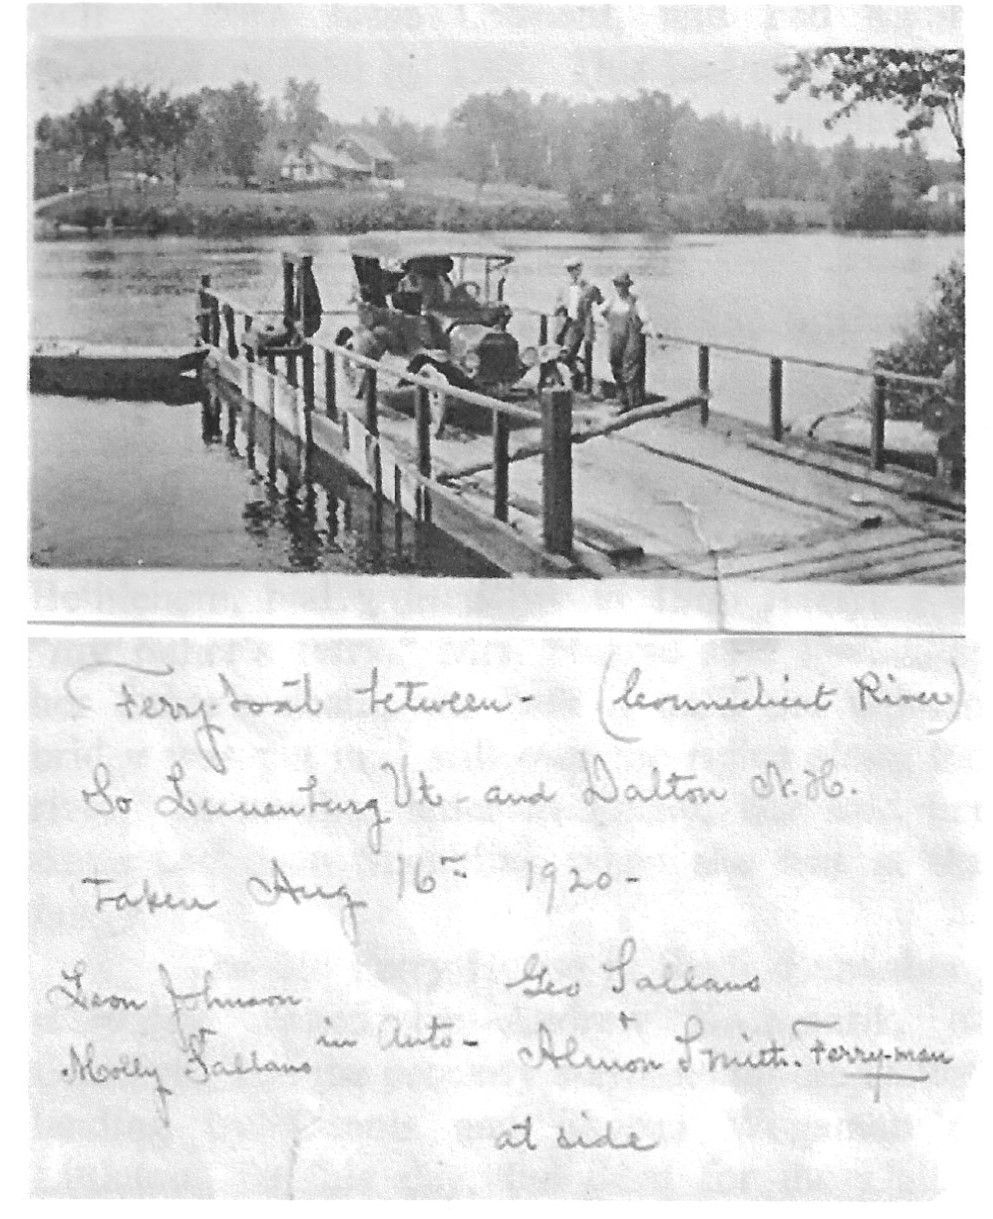 Ferry-boat between- (Connecticut River)
So Lunenburg Vt - and Dalton N.H.
Taken Aug 16th 1920-
Leon Johnson
+
Molly Sallans in Auto-
Geo Sallans
+
Almon Smith. Ferry-man
at side